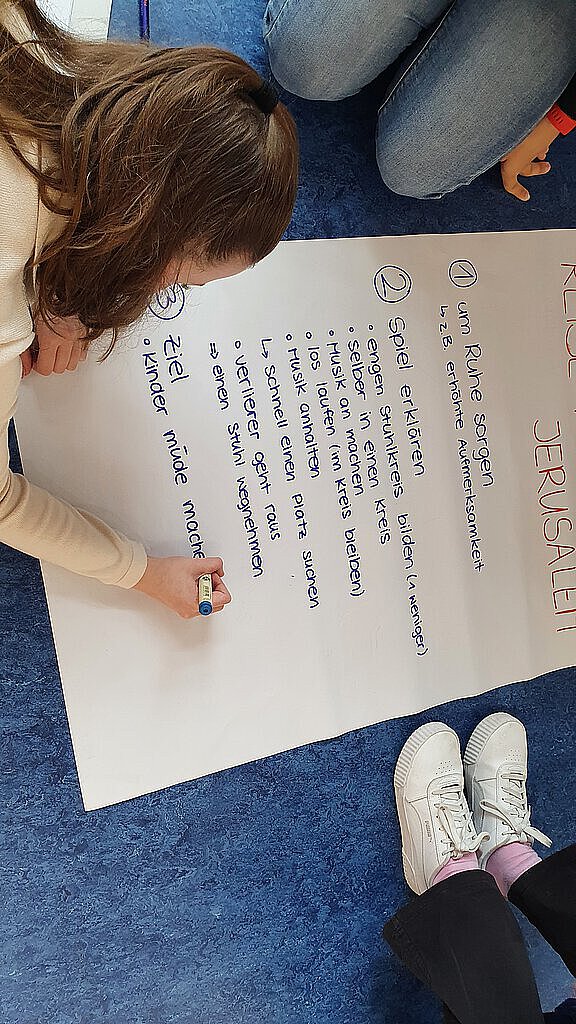 REISE
JERUSALEM
① um Ruhe sorgen
↳ z.B. erhöhte Aufmerksamkeit
② Spiel erklären
• engen Stuhlkreis bilden (1 weniger)
• selber in einen Kreis
• Musik an machen
• los laufen (im Kreis bleiben)
• Musik anhalten
↳ schnell einen platz suchen
• verlierer geht raus
⇒ einen Stuhl wegnehmen
③ Ziel
• kinder müde mache